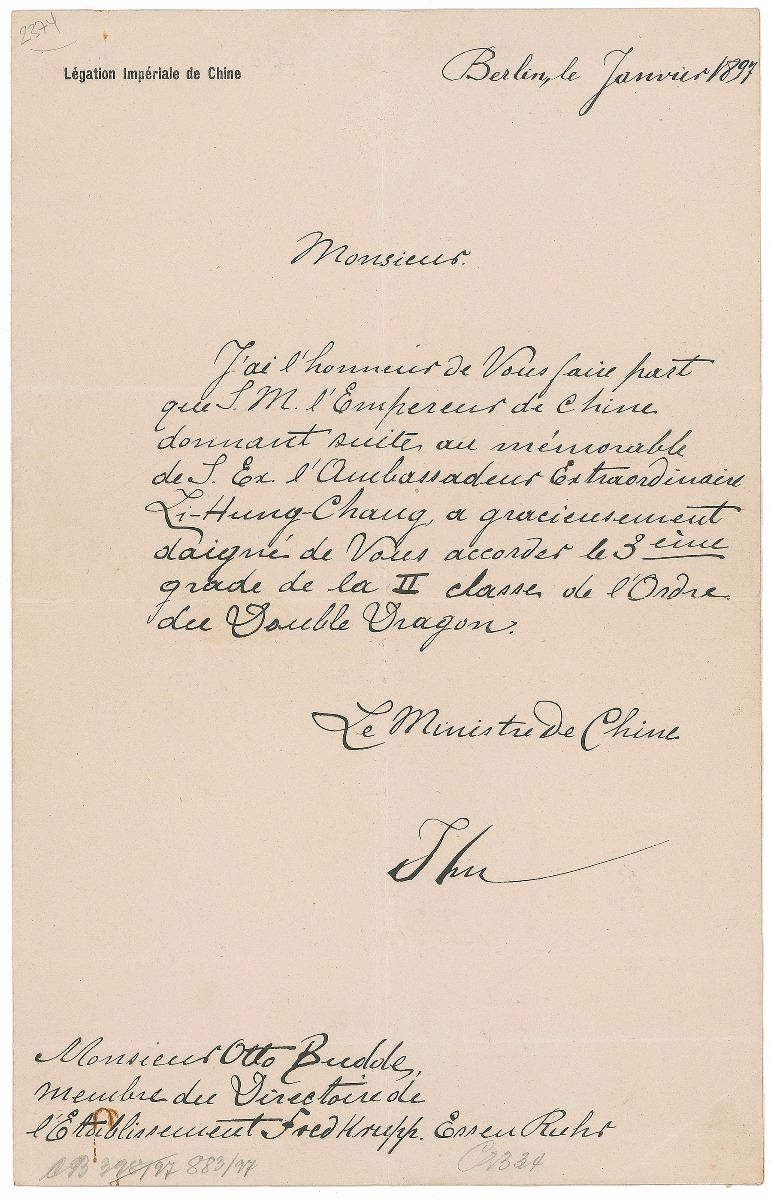 2374
Légation Impériale de Chine
Berlin, le Janvier 1897
Monsieur.
J'ai l'honneur de Vous faire part
que S. M. l'Empereur de Chine
donnant suite au mémorable
de S. Ex. l'Ambassadeur Extraordinaire
Li-Hung-Chang, a gracieusement
daigné de Vous accorder le 3ème
grade de la II classe de l'Ordre
du Double Dragon.
Le Ministre de Chine
Monsieur Otto Budde,
membre du Directoire de
l'Etablissement Fred Krupp. Essen Ruhr
883/97